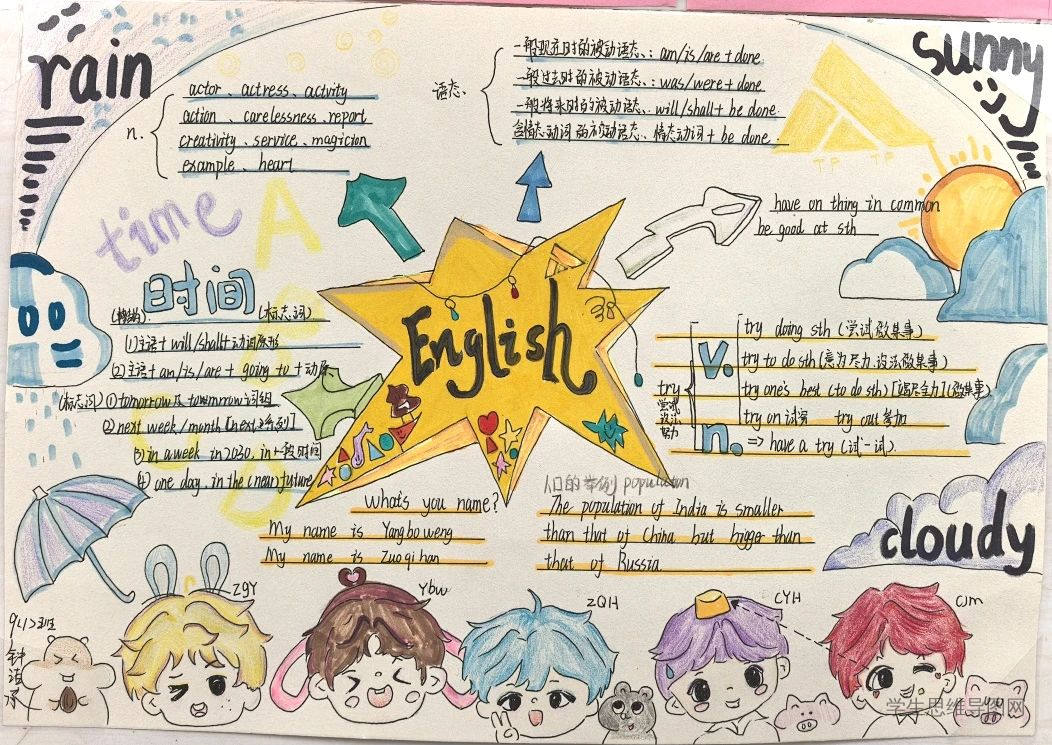 rain
sunny
n.
actor、actress、activity
action、carelessness、report
creativity、service、magician
example、heart
语态、
一般现在时的被动语态、: am/is/are + done
一般过去时的被动语态、: was/were + done
一般将来时的被动语态、will/shall + be done
含情态动词的被动语态、情态动词 + be done
TP TP
time
have on thing in common
be good at sth
时间
(标志词)
(1)主语 + will/shall + 动词原形
(2)主语 + am/is/are + going to + 动原
(标志词) ① tomorrow及 tomorrow词组
② next week/month [next系列]
③ in a week in 2030, in + 一段时间
④ one day, in the (near) future
English
v.
try doing sth (尝试做某事)
try to do sth (意为尽力、设法做某事)
try
尝试
设法
努力
try one's best (to do sth) [竭尽全力](做某事)
try on 试穿 try out 参加
n.
=> have a try (试一试)
What's you name?
My name is Yang bo weng
My name is Zuo qi han
人口的举例 population
The population of India is smaller
than that of China but bigger than
that of Russia
cloudy
9(1)班
ZGY
Ybw
ZQH
CYH
CJM
学生思维导图网